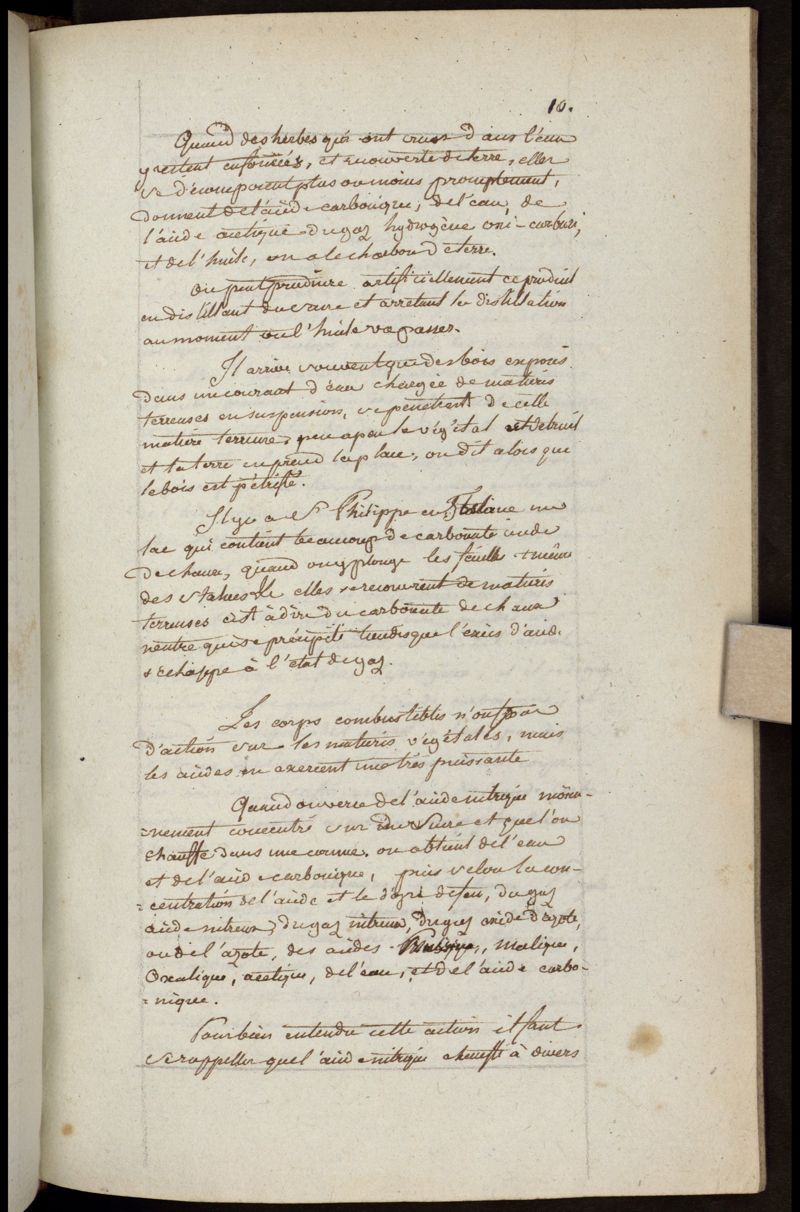 10.
Quand des herbes qui ont crues dans l'eau
y restent enfoncées, et recouverte de terre, elles
se décomposent plus ou moins promptement,
donnent de l'acide carbonique, de l'eau, de
l'acide acétique du gaz hydrogène oxi-carburé,
et de l'huile, on a le charbon de terre.
On peut produire artificiellement ce produit
en distillant du sucre et arrêtant la distillation
au moment ou l'huile va passer.
Il arrive souvent que des bois exposés
dans un courant d'eau chargée de matières
terreuses en suspension, se penêtrent de cette
matière terreuse, peu a peu le végétal est détruit
et la terre en prend la place, on dit alors que
le bois est pétrifié.
Il y a a St Philippe en une
lac qui contient beaucoup de carbonate acide
de chaux, quand on y plonge les feuilles même
des statues elles se recouvrent de matières
terreuses c'est à dire du carbonate de chaux
neutre qui se précipite tandis que l'excès d'acide
s'echappe à l'état de gaz.
Les corps combustibles n'ont pas
d'action sur les matières végétales, mais
les acides en exercent une très puissante
Quand on verse de l'acide nitrique
=nement concentré sur du sucre et que l'on
chauffe dans une cornue. on obtient de l'eau
et de l'acide carbonique, puis selon la con-
=centration de l'acide et le dégré de feu, du gaz
acide nitreux, du gaz nitreux, du gaz oxide d'azote,
ou de l'azote, des acides malique,
Oxalique, acetique, de l'eau, et de l'acide carbo-
=nique.
Pour bien entendre cette action il faut
se rappeller que l'acide nitrique chauffé à divers